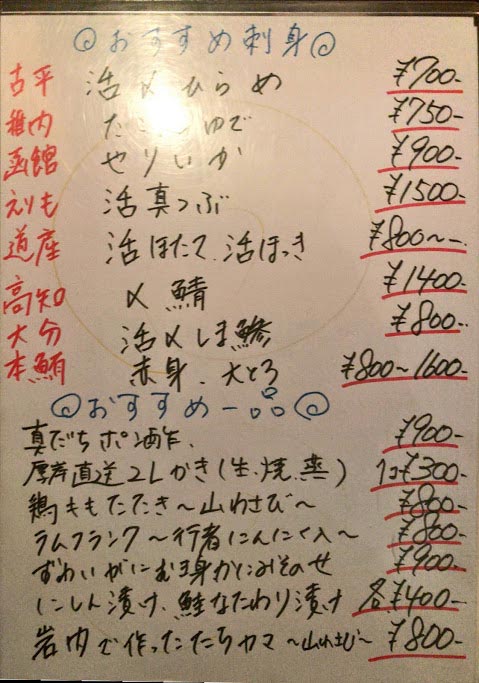 おすすめ刺身
古平 活〆ひらめ ¥700-
稚内 たこ ゆで ¥750-
函館 やりいか ¥900-
えりも 活真つぶ ¥1500-
道産 活ほたて、活ほっき ¥800～-
高知 〆鯖 ¥1400-
大分 活〆しま鯵 ¥800-
本鮪 赤身、大とろ ¥800～1600-
おすすめ一品
真だちポン酢 ¥900-
厚岸直送2Lかき(生、焼、蒸) 1コ¥300-
鶏ももたたき～山わさび～ ¥800-
ラムフランク～行者にんにく入～ ¥800-
ずわいがにむき身かにみそのせ ¥900-
にしん漬け、鮭なたわり漬け 各¥400-
岩内で作ったたちカマ～山わさび～ ¥800-